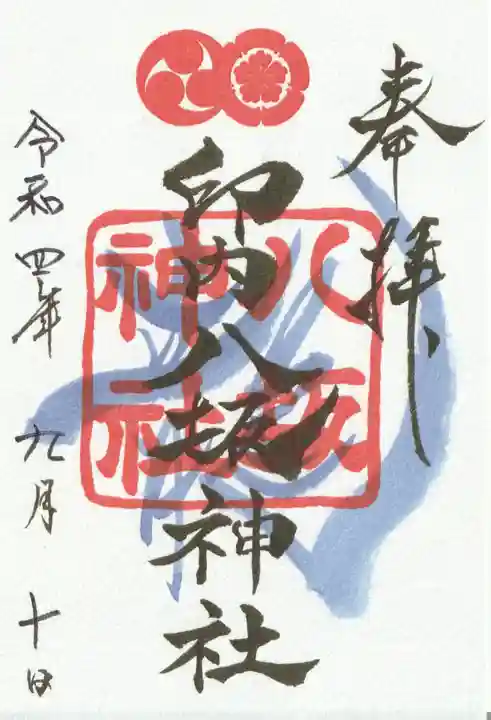 奉拝
印内八坂神社
八坂
神社
令和四年 九月 十日